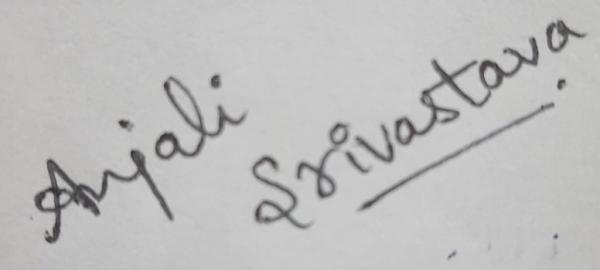 Anjali Srivastava